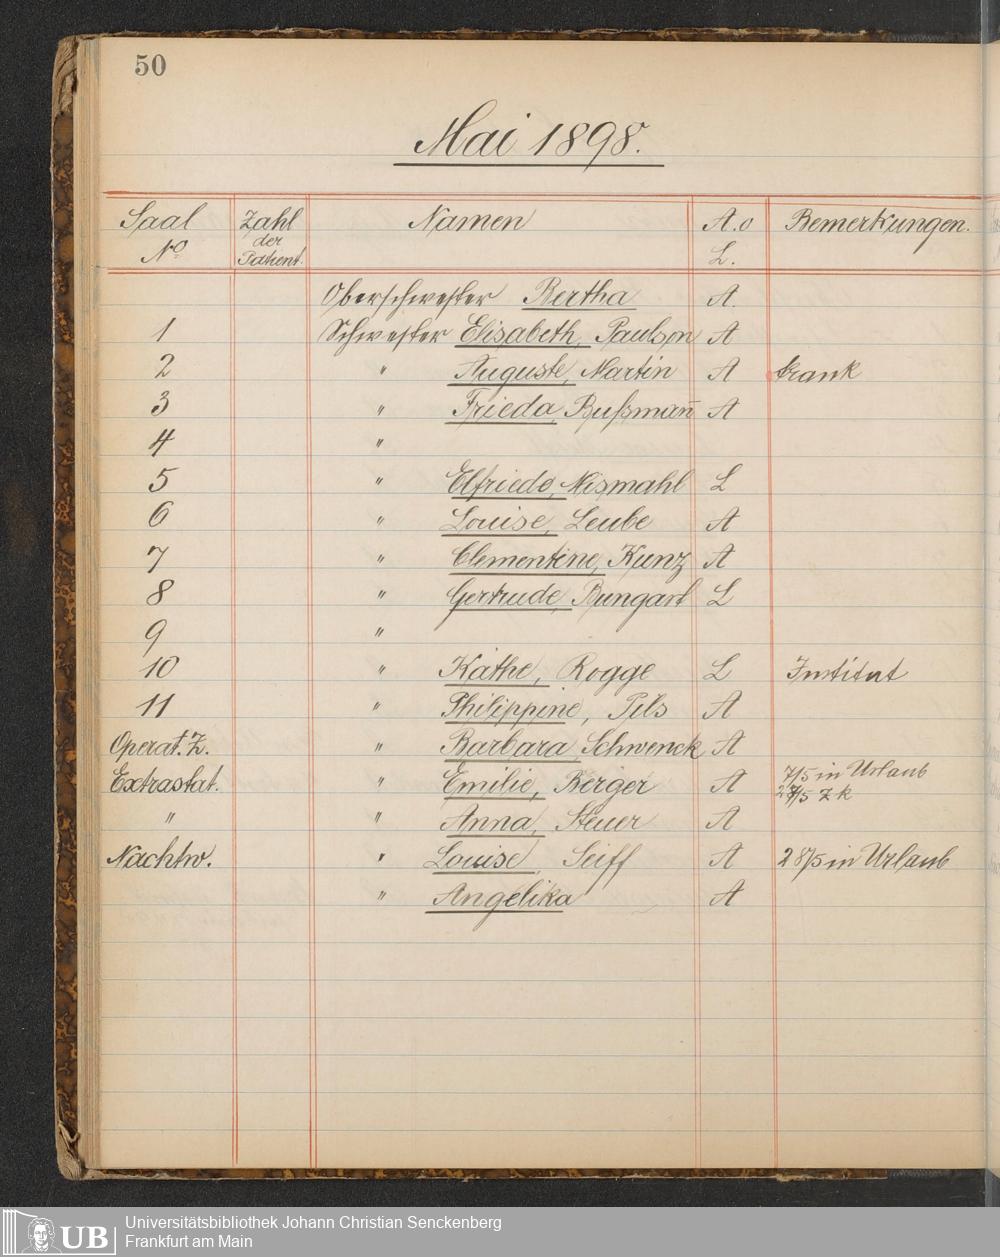 50
Mai 1898.
Saal Nº Zahl der Patient. Namen A. o L. Bemerkungen.
Oberschwester Bertha A.
1 Schwester Elisabeth, Paulson A
2 " Auguste, Martin A krank
3 " Frieda, Bußman̄ A
4 "
5 " Elfriede, Nismahl L
6 " Louise, Leube A
7 " Clementine, Kunz A
8 " Gertrude, Bungart L
9 "
10 " Käthe, Rogge L Institut
11 " Philippine, Pils A
Operat. Z. " Barbara, Schwenck A
Extrastat. " Emilie, Berger A 7/5 in Urlaub
28/5 Z k
" " Anna, Steuer A
Nachtw. " Louise, Seiff A 28/5 in Urlaub
" Angelika A
UB Universitätsbibliothek Johann Christian Senckenberg
Frankfurt am Main